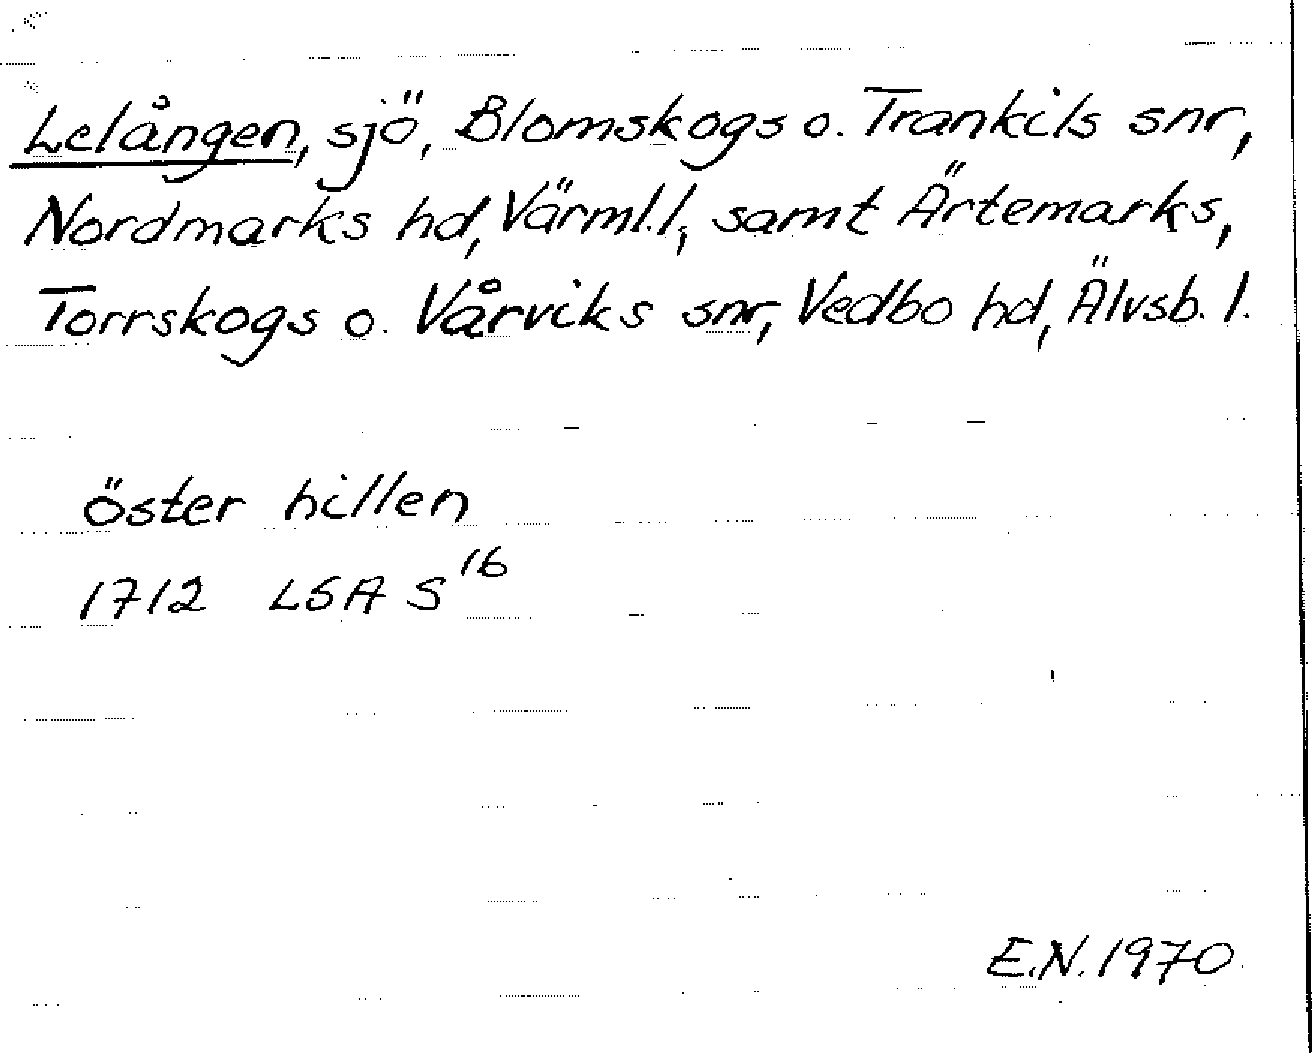 Lelången, sjö, Blomskogs o. Trankils snr,
Nordmarks hd, Värml. l, samt Ärtemarks,
Torrskogs o. Vårviks snr, Vedbo hd, Älvsb. l.
öster hillen
1712 LSA S¹⁶
E.N. 1970